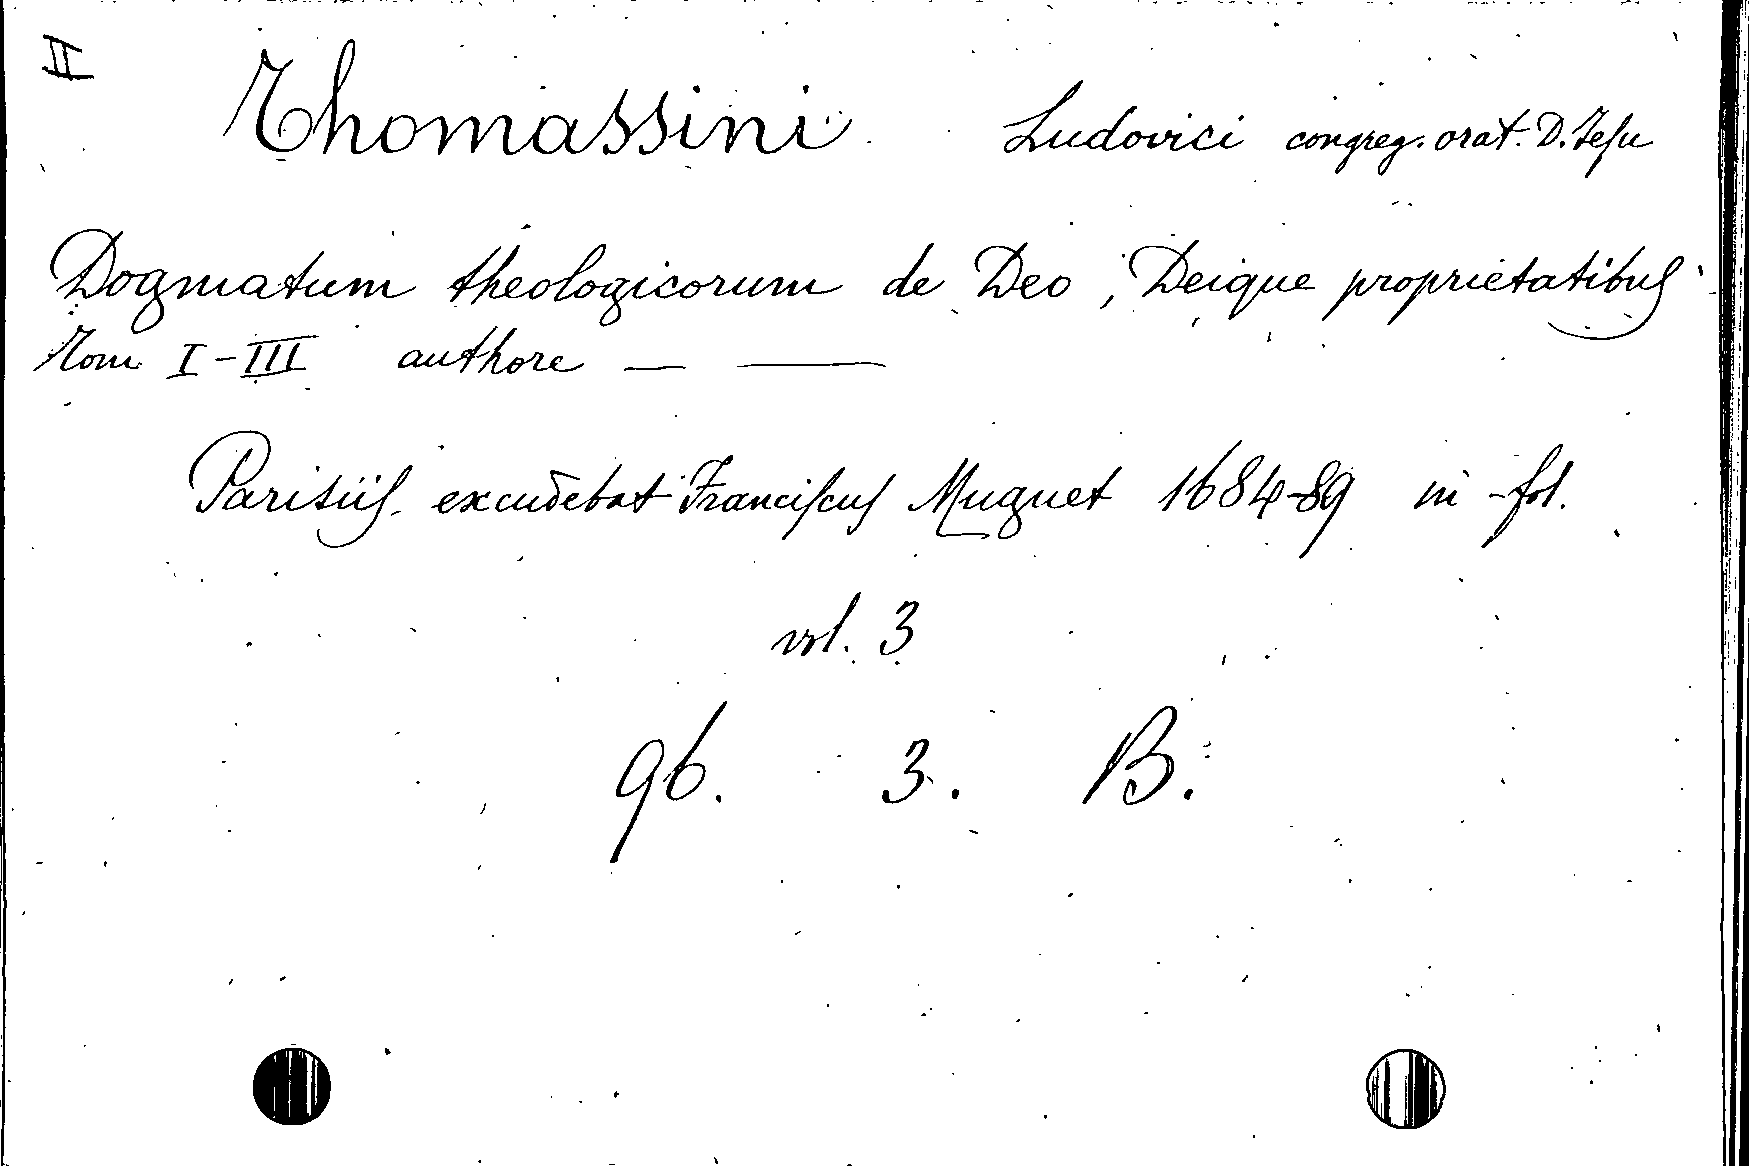 II
Thomassini Ludovici congreg. orat. D. Jesu
Dogmatum theologicorum de Deo, Deique proprietatibus
Tom I-III authore — ——
Parisiis excudebat Franciscus Muguet 1684-89 in-fol.
vol. 3
96. 3. B.